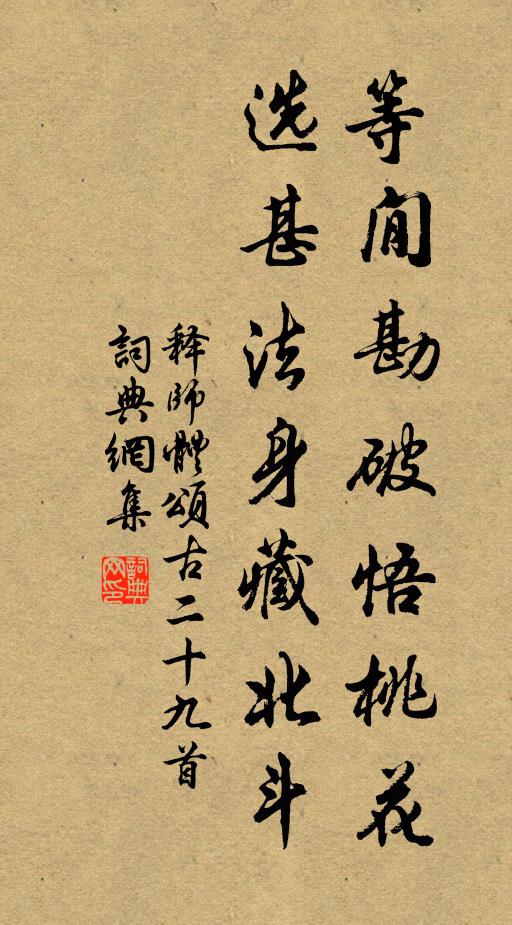 等閒勘破悟桃花
选甚法身藏北斗
释師體頌古二十九首
詞典網集
詞典網印